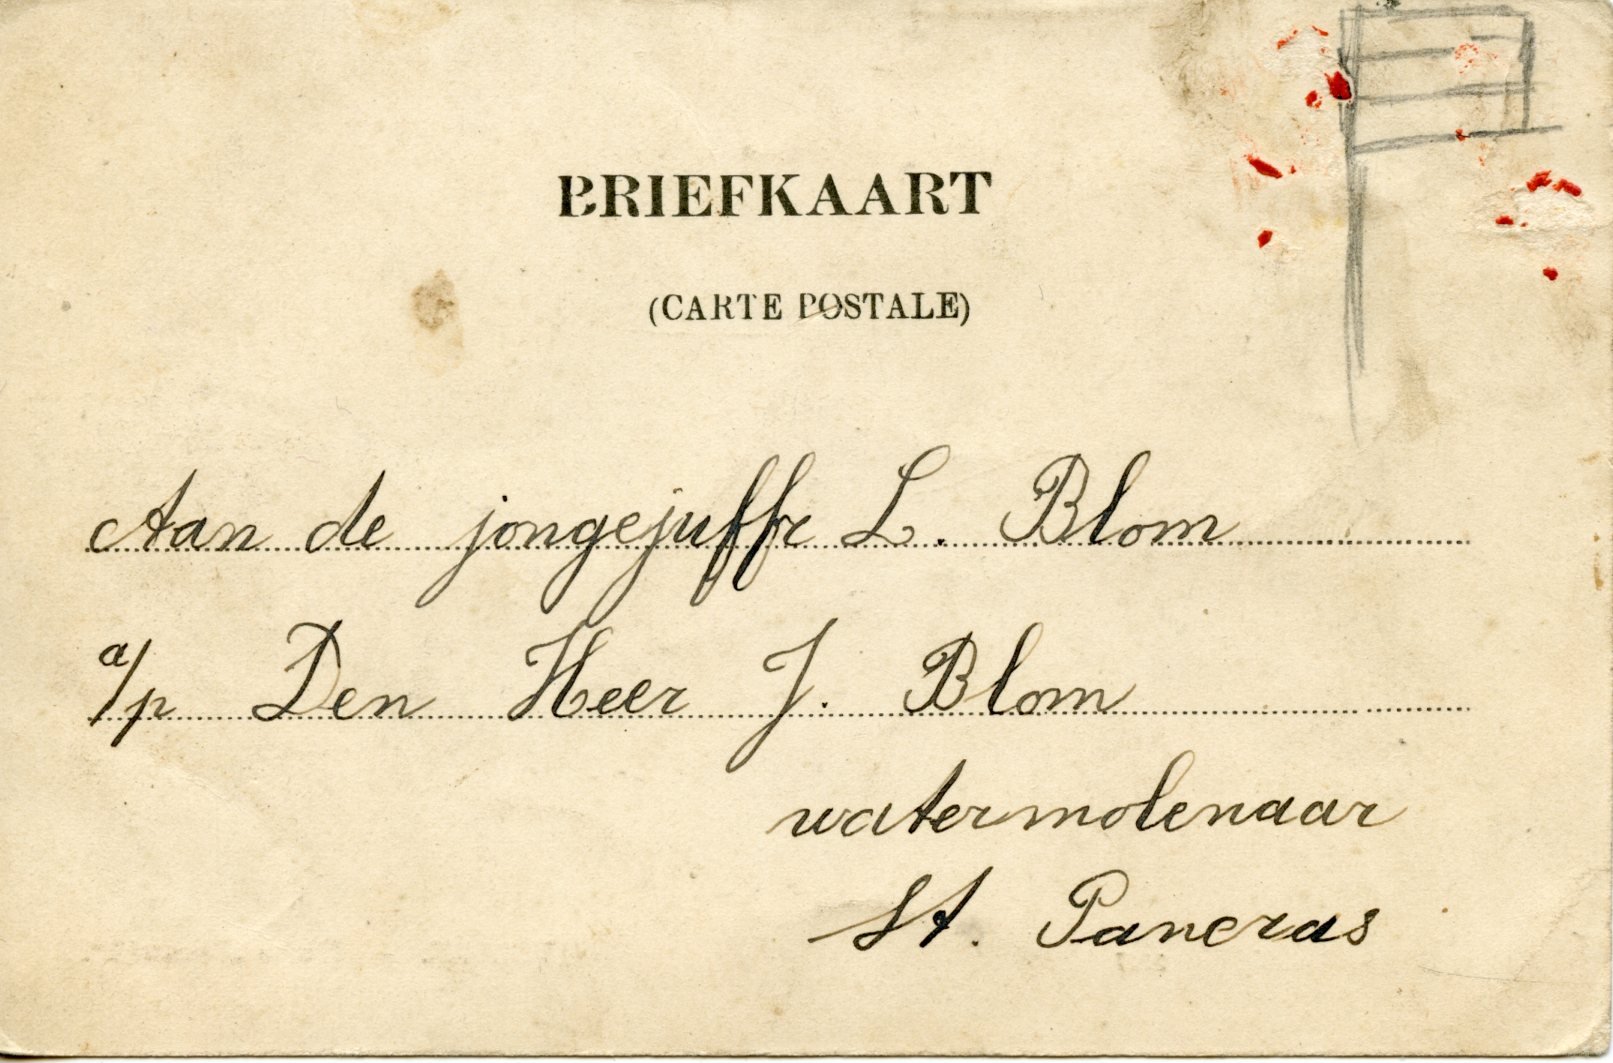 BRIEFKAART
(CARTE POSTALE)
Aan de jongejuffr L. Blom
a/p Den Heer J. Blom
watermolenaar
St. Pancras